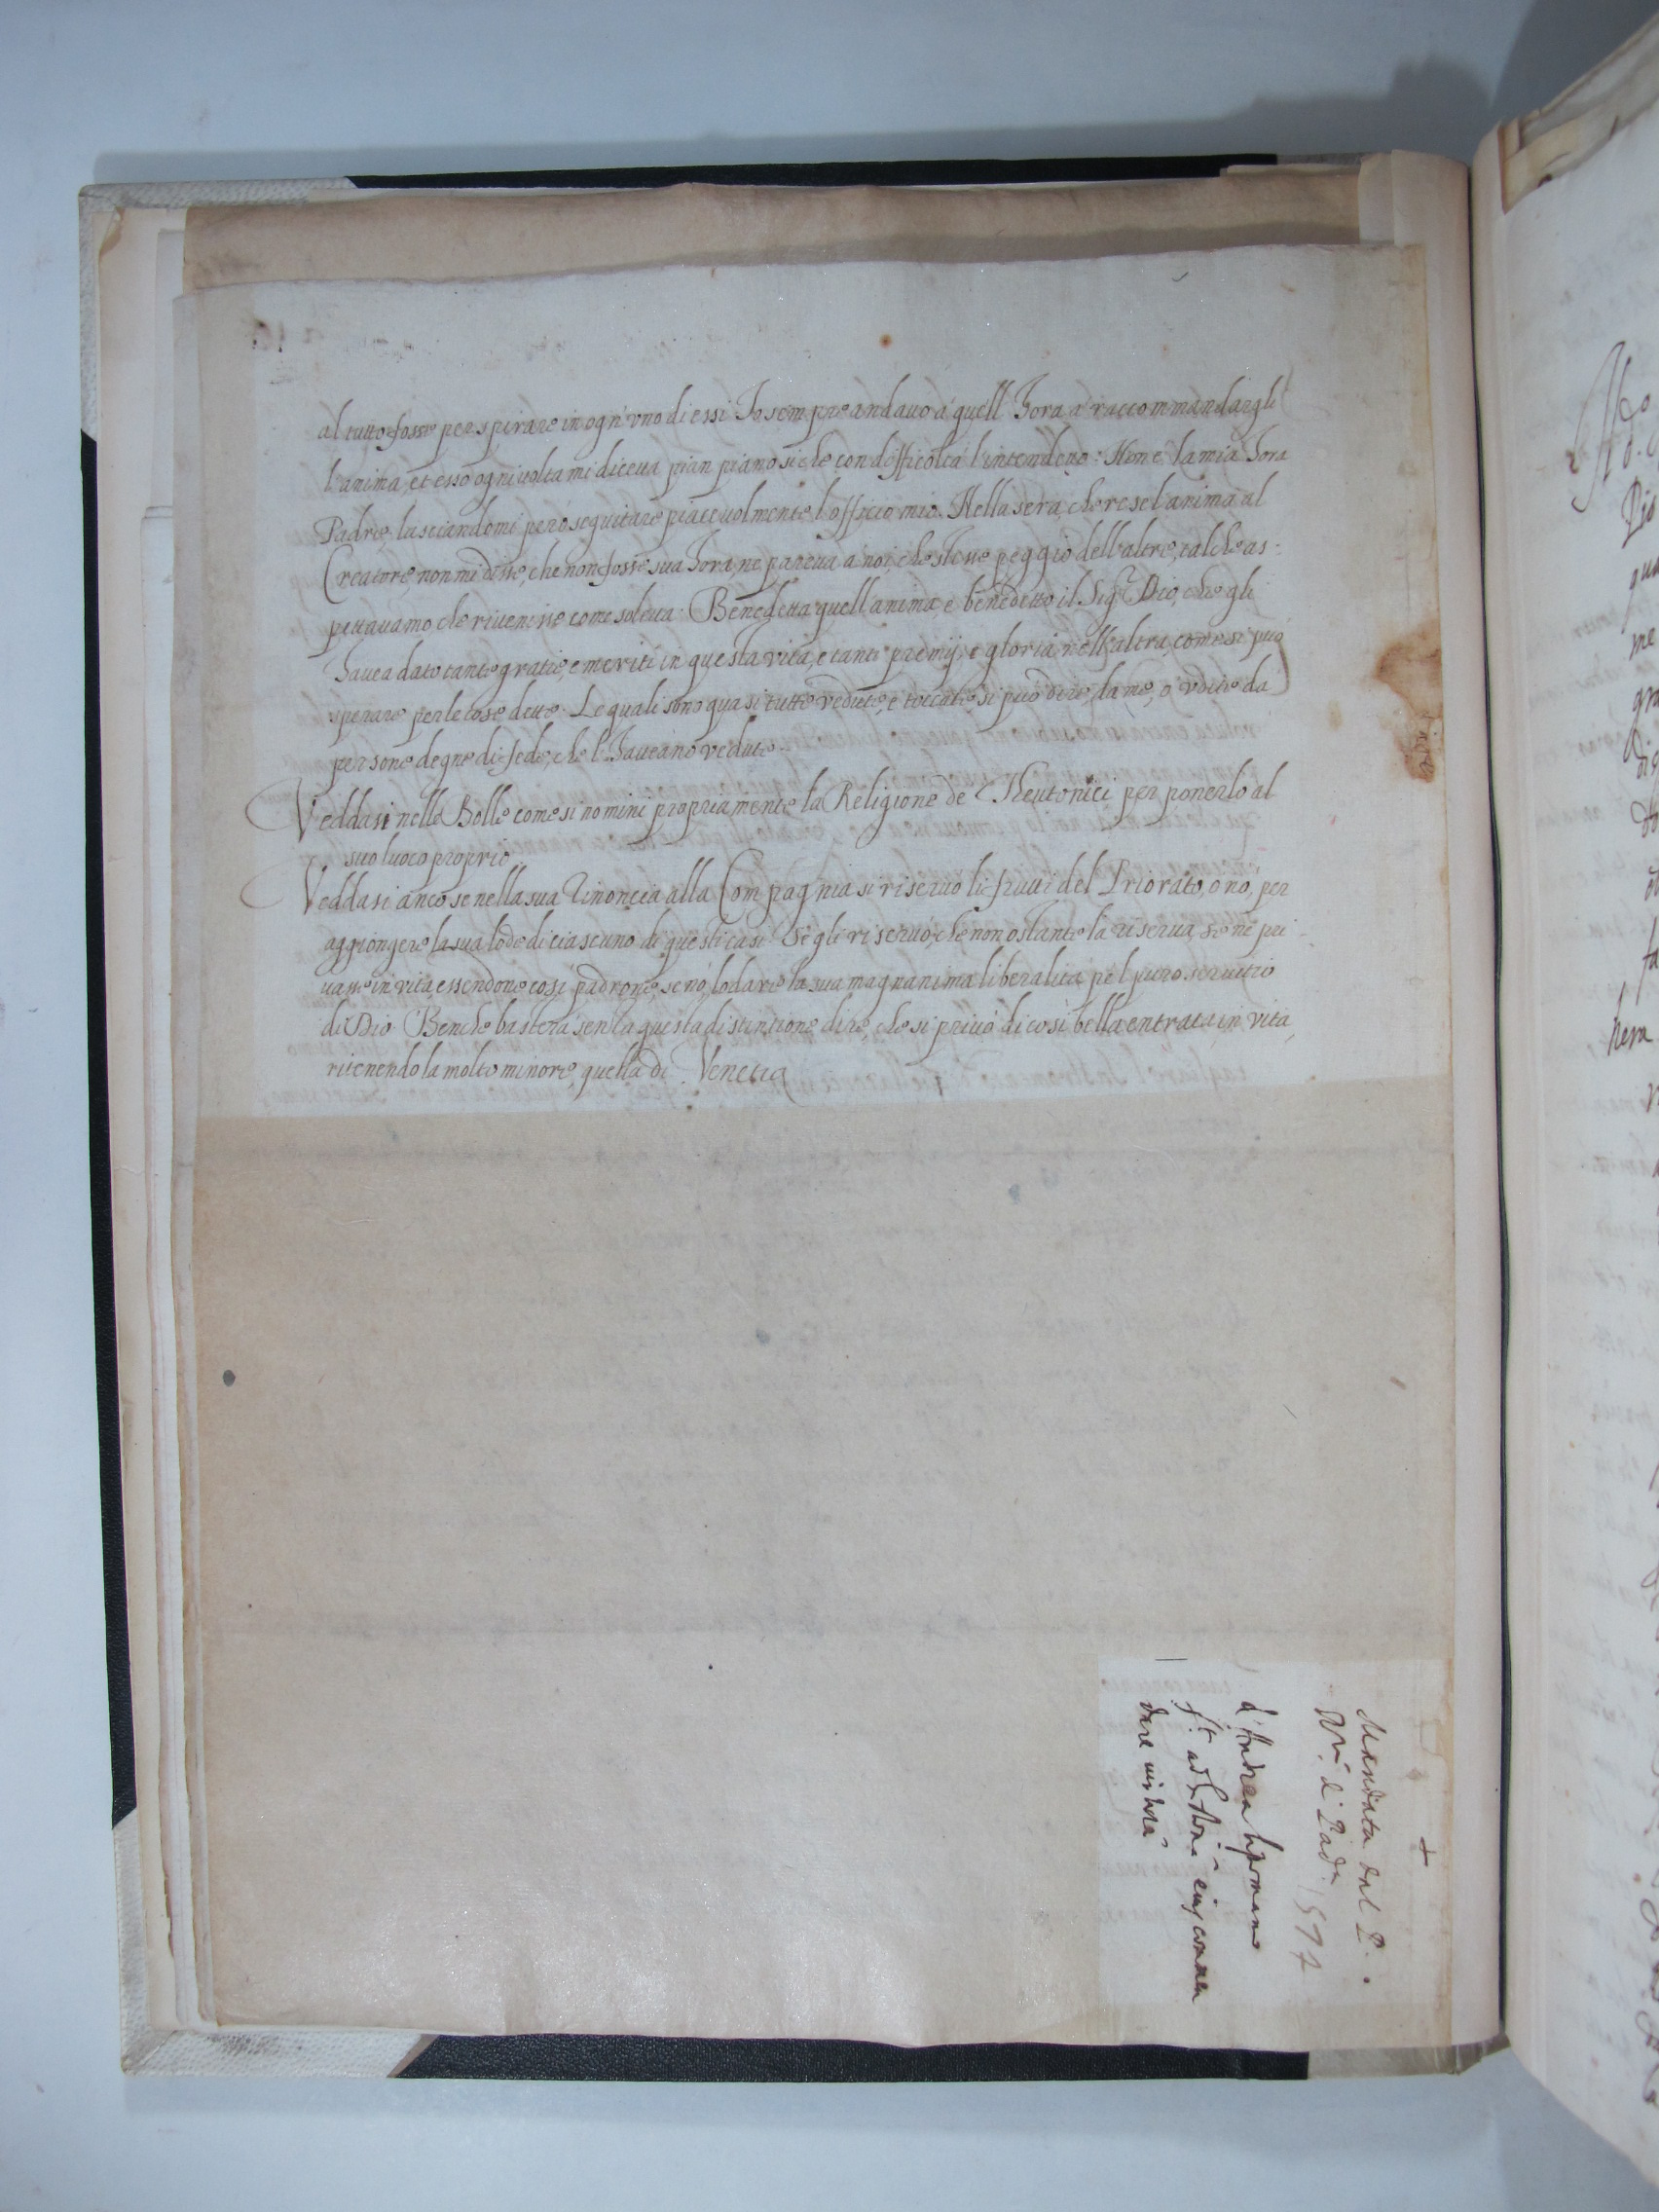 al tutto fosse per spirare in ogn'vno di essi. Io sempre andauo à quell'hora à raccommandargli
l'anima, et esso ogni uolta mi diceua pian piano si che con difficoltà l'intendeuo: Non è la mia hora
Padre, lasciandomi pero seguitare piaceuolmente l'officio mio. Nella sera, che rese l'anima al
Creatore, non mi disse, che non fosse sua hora, ne pareua a noi, che stesse peggio dell'altre, tal che as-
pettauamo che riuenisse come soleua. Benedetta quell'anima e benedetto il Sig.r Dio, che gli
hauea dato tante gratie, e meriti in questa vita, e tanti premij, e gloria nell'altra, come si può
sperare per le cose dette. Le quali sono quasi tutte vedute, e toccate, si può dire, da me, o vdite da
persone degne di fede, che l'haueano vedute.
Veddasi nelle Bolle come si nomini propriamente la Religione de Theutonici per ponerlo al
suo luoco proprio.
Veddasi anco se nella sua rinoncia alla Compagnia si riseruò li frutti del Priorato, ò nò, per
aggiongere la sua lode di ciascuno di questi casi. Se gli riseruò, che non ostante la riserua, se ne pri-
uasse in vita, essendone così padrone, se nò, lodare la sua magnanima liberalità pel puro seruitio
di Dio. Benche basterà senza questa distintione dire, che si priuò di così bella entrata in vita,
ritenendo la molto minore, quella di Venetia
+
Mandata dal P.
di Pad.a 1574
d'Andrea Lipomano